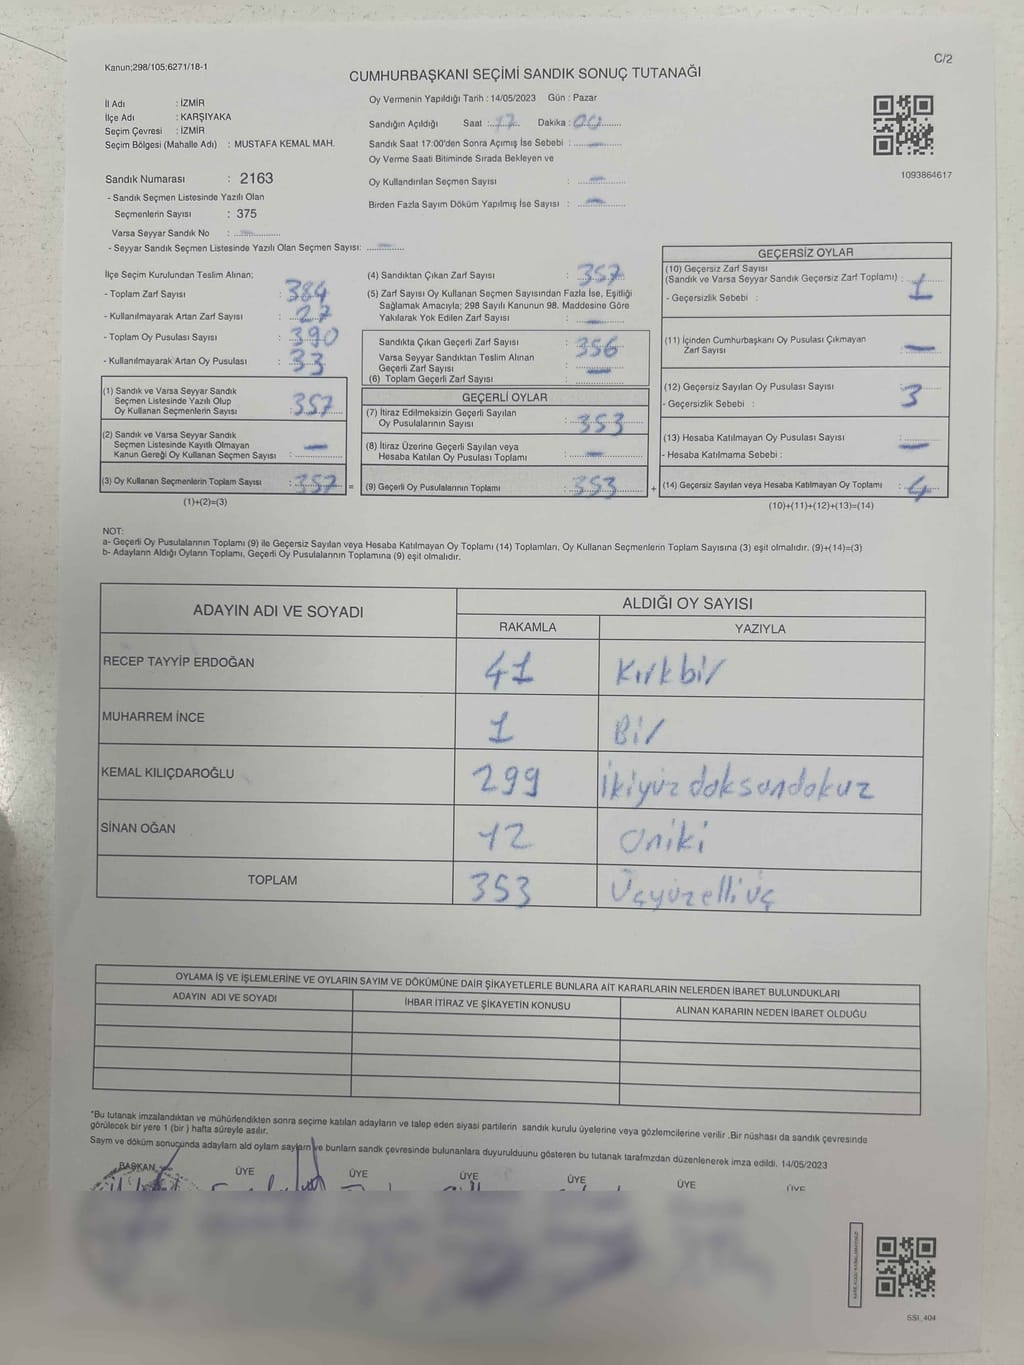 Kanun;298/105;6271/18-1
C/2
CUMHURBAŞKANI SEÇİMİ SANDIK SONUÇ TUTANAĞI
İl Adı : İZMİR
İlçe Adı : KARŞIYAKA
Seçim Çevresi : İZMİR
Seçim Bölgesi (Mahalle Adı) : MUSTAFA KEMAL MAH.
Oy Vermenin Yapıldığı Tarih : 14/05/2023 Gün : Pazar
Sandığın Açıldığı Saat : 17 Dakika : 00
Sandık Saat 17:00'den Sonra Açımış İse Sebebi : —
Oy Verme Saati Bitiminde Sırada Bekleyen ve
Oy Kullandırılan Seçmen Sayısı : —
Birden Fazla Sayım Döküm Yapılmış İse Sayısı : —
1093864617
Sandık Numarası : 2163
- Sandık Seçmen Listesinde Yazılı Olan
Seçmenlerin Sayısı : 375
Varsa Seyyar Sandık No : —
- Seyyar Sandık Seçmen Listesinde Yazılı Olan Seçmen Sayısı: —
İlçe Seçim Kurulundan Teslim Alınan;
- Toplam Zarf Sayısı : 384
- Kullanılmayarak Artan Zarf Sayısı : 27
- Toplam Oy Pusulası Sayısı : 390
- Kullanılmayarak Artan Oy Pusulası : 33
(1) Sandık ve Varsa Seyyar Sandık
Seçmen Listesinde Yazılı Olup
Oy Kullanan Seçmenlerin Sayısı : 357
(2) Sandık ve Varsa Seyyar Sandık
Seçmen Listesinde Kayıtlı Olmayan
Kanun Gereği Oy Kullanan Seçmen Sayısı : —
(3) Oy Kullanan Seçmenlerin Toplam Sayısı : 357 =
(1)+(2)=(3)
(4) Sandıktan Çıkan Zarf Sayısı : 357
(5) Zarf Sayısı Oy Kullanan Seçmen Sayısından Fazla İse, Eşitliği
Sağlamak Amacıyla; 298 Sayılı Kanunun 98. Maddesine Göre
Yakılarak Yok Edilen Zarf Sayısı : —
Sandıkta Çıkan Geçerli Zarf Sayısı : 356
Varsa Seyyar Sandıktan Teslim Alınan
Geçerli Zarf Sayısı : —
(6) Toplam Geçerli Zarf Sayısı :
GEÇERLİ OYLAR
(7) İtiraz Edilmeksizin Geçerli Sayılan
Oy Pusulalarının Sayısı : 353
(8) İtiraz Üzerine Geçerli Sayılan veya
Hesaba Katılan Oy Pusulası Toplamı : —
(9) Geçerli Oy Pusulalarının Toplamı : 353 +
GEÇERSİZ OYLAR
(10) Geçersiz Zarf Sayısı
(Sandık ve Varsa Seyyar Sandık Geçersiz Zarf Toplamı) : 1
- Geçersizlik Sebebi :
(11) İçinden Cumhurbaşkanı Oy Pusulası Çıkmayan
Zarf Sayısı —
(12) Geçersiz Sayılan Oy Pusulası Sayısı : 3
- Geçersizlik Sebebi :
(13) Hesaba Katılmayan Oy Pusulası Sayısı : —
- Hesaba Katılmama Sebebi :
(14) Geçersiz Sayılan veya Hesaba Katılmayan Oy Toplamı : 4
(10)+(11)+(12)+(13)=(14)
NOT:
a- Geçerli Oy Pusulalarının Toplamı (9) ile Geçersiz Sayılan veya Hesaba Katılmayan Oy Toplamı (14) Toplamları, Oy Kullanan Seçmenlerin Toplam Sayısına (3) eşit olmalıdır. (9)+(14)=(3)
b- Adayların Aldığı Oyların Toplamı, Geçerli Oy Pusulalarının Toplamına (9) eşit olmalıdır.
ADAYIN ADI VE SOYADI
ALDIĞI OY SAYISI
RAKAMLA YAZIYLA
RECEP TAYYİP ERDOĞAN 41 Kırkbir
MUHARREM İNCE 1 Bir
KEMAL KILIÇDAROĞLU 299 İkiyüz doksandokuz
SİNAN OĞAN 12 Oniki
TOPLAM 353 Üçyüzelliüç
OYLAMA İŞ VE İŞLEMLERİNE VE OYLARIN SAYIM VE DÖKÜMÜNE DAİR ŞİKAYETLERLE BUNLARA AİT KARARLARIN NELERDEN İBARET BULUNDUKLARI
ADAYIN ADI VE SOYADI İHBAR İTİRAZ VE ŞİKAYETİN KONUSU ALINAN KARARIN NEDEN İBARET OLDUĞU
*Bu tutanak imzalandıktan ve mühürlendikten sonra seçime katılan adayların ve talep eden siyasi partilerin sandık kurulu üyelerine veya gözlemcilerine verilir .Bir nüshası da sandık çevresinde
görülecek bir yere 1 (bir ) hafta süreyle asılır.
Sayım ve döküm sonuçunda adayların ald oyların sayları ve bunların sandk çevresinde bulunanlara duyurulduunu gösteren bu tutanak tarafmzdan düzenlenerek imza edildi. 14/05/2023
BAŞKAN ÜYE ÜYE ÜYE ÜYE ÜYE ÜYE
SSI_404